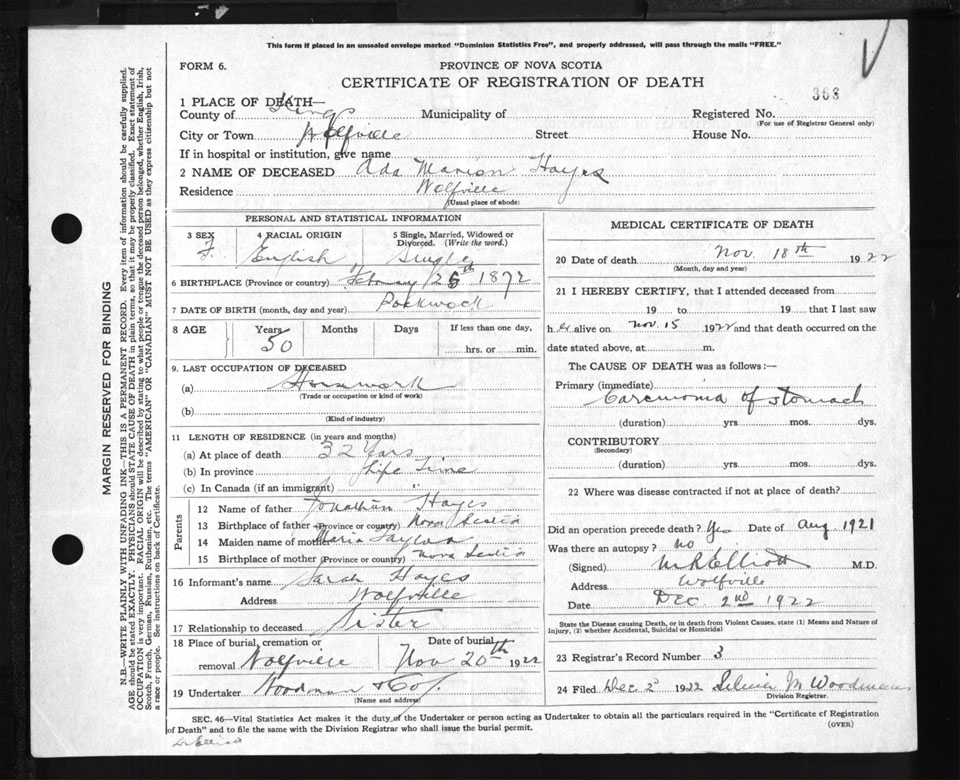 This form if placed in an unsealed envelope marked "Dominion Statistics Free", and properly addressed, will pass through the mails "FREE."
FORM 6.
PROVINCE OF NOVA SCOTIA
CERTIFICATE OF REGISTRATION OF DEATH
363
1 PLACE OF DEATH—
County of Kings Municipality of Registered No.
(For use of Registrar General only)
City or Town Wolfville Street House No.
If in hospital or institution, give name
2 NAME OF DECEASED Ada Marion Hayes
Residence Wolfville
(Usual place of abode)
PERSONAL AND STATISTICAL INFORMATION
3 SEX 4 RACIAL ORIGIN 5 Single, Married, Widowed or Divorced. (Write the word.)
F. English Single
6 BIRTHPLACE (Province or country) February 26th 1872
7 DATE OF BIRTH (month, day and year) Pockwock
8 AGE Years Months Days If less than one day,
50 hrs. or min.
9. LAST OCCUPATION OF DECEASED
(a) Housework
(Trade or occupation or kind of work)
(b)
(Kind of industry)
11 LENGTH OF RESIDENCE (in years and months)
(a) At place of death 32 Years
(b) In province Life Time
(c) In Canada (if an immigrant)
Parents
12 Name of father Jonathan Hayes
13 Birthplace of father (Province or country) Nova Scotia
14 Maiden name of mother Maria Taylor
15 Birthplace of mother (Province or country) Nova Scotia
16 Informant's name Sarah Hayes
Address Wolfville
17 Relationship to deceased Sister
18 Place of burial, cremation or removal Wolfville Date of burial Nov 20th 1922
19 Undertaker Woodman & Co.
(Name and address)
MEDICAL CERTIFICATE OF DEATH
20 Date of death Nov. 18th 1922
(Month, day and year)
21 I HEREBY CERTIFY, that I attended deceased from
19 to 19 that I last saw
her alive on Nov. 15 1922 and that death occurred on the
date stated above, at m.
The CAUSE OF DEATH was as follows:—
Primary (immediate)
Carcinoma of stomach
(duration) yrs. mos. dys.
CONTRIBUTORY
(Secondary)
(duration) yrs. mos. dys.
22 Where was disease contracted if not at place of death?
Did an operation precede death? Yes Date of Aug 1921
Was there an autopsy? no
(Signed) M R Elliott M.D.
Address Wolfville
Date Dec 2nd 1922
State the Disease causing Death, or in death from Violent Causes, state (1) Means and Nature of Injury, (2) whether Accidental, Suicidal or Homicidal
23 Registrar's Record Number 3
24 Filed Dec 2 1922 M Woodman
Division Registrar.
SEC. 46—Vital Statistics Act makes it the duty of the Undertaker or person acting as Undertaker to obtain all the particulars required in the "Certificate of Registration
of Death" and to file the same with the Division Registrar who shall issue the burial permit.
(OVER)
MARGIN RESERVED FOR BINDING
N.B.—WRITE PLAINLY WITH UNFADING INK—THIS IS A PERMANENT RECORD. Every item of information should be carefully supplied.
AGE should be stated EXACTLY. PHYSICIANS should STATE CAUSE OF DEATH in plain terms, so that it may be properly classified. Exact statement of
OCCUPATION is very important. RACIAL ORIGIN will be described by stating to what people or tongue the deceased person belonged, whether English, Irish,
Scotch, French, German, Russian, Ruthenian, etc. The terms "AMERICAN" OR "CANADIAN" MUST NOT BE USED as they express citizenship but not
a race or people. See instructions on back of Certificate.